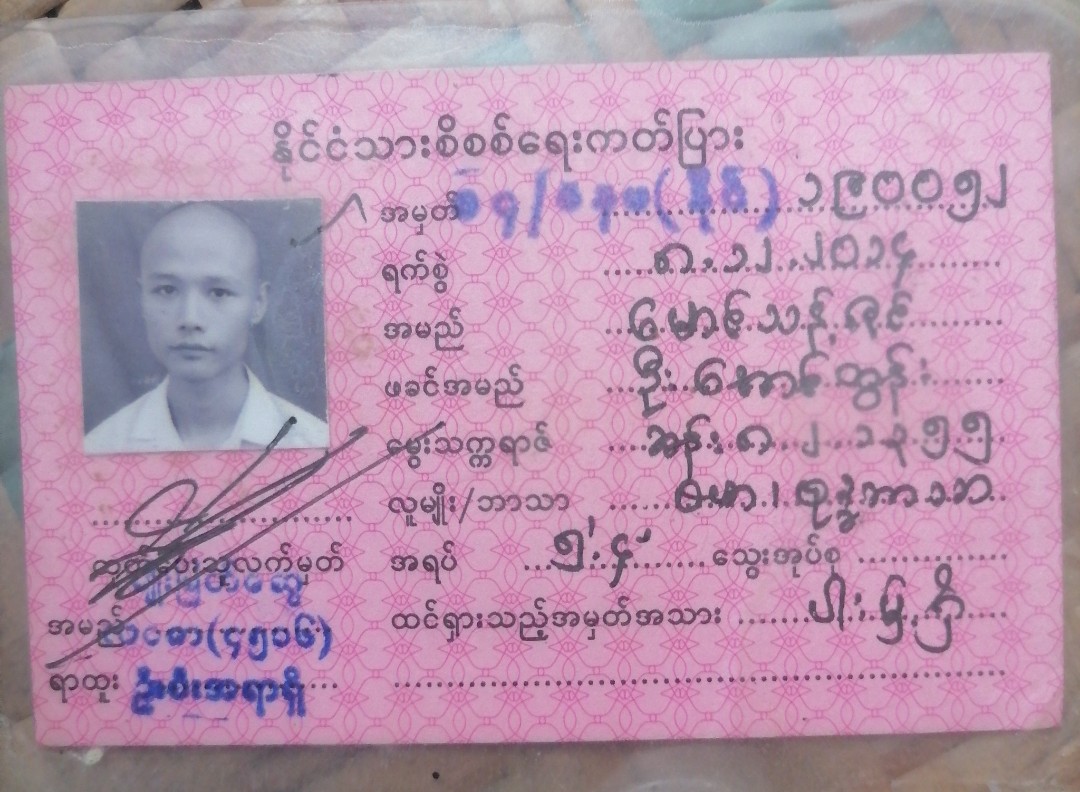 နိုင်ငံသားစိစစ်ရေးကတ်ပြား
အမှတ် ၁၄/ (နိုင်) ၁၉၀၀၅၂
ရက်စွဲ ၈.၁၂.၂၀၁၄
အမည် မောင်သန့်ဇင်
ဖခင်အမည် ဦးအောင်ထွန်း
မွေးသက္ကရာဇ် ၈.၂.၁၃၅၅
လူမျိုး/ဘာသာ ဗမာ၊ ဗုဒ္ဓဘာသာ
အရပ် ၅' ၄" သွေးအုပ်စု
ထင်ရှားသည့်အမှတ်အသား
ထုတ်ပေးသူလက်မှတ်
အမည် (၄၅၀၆)
ရာထူး ဦးစီးအရာရှိ